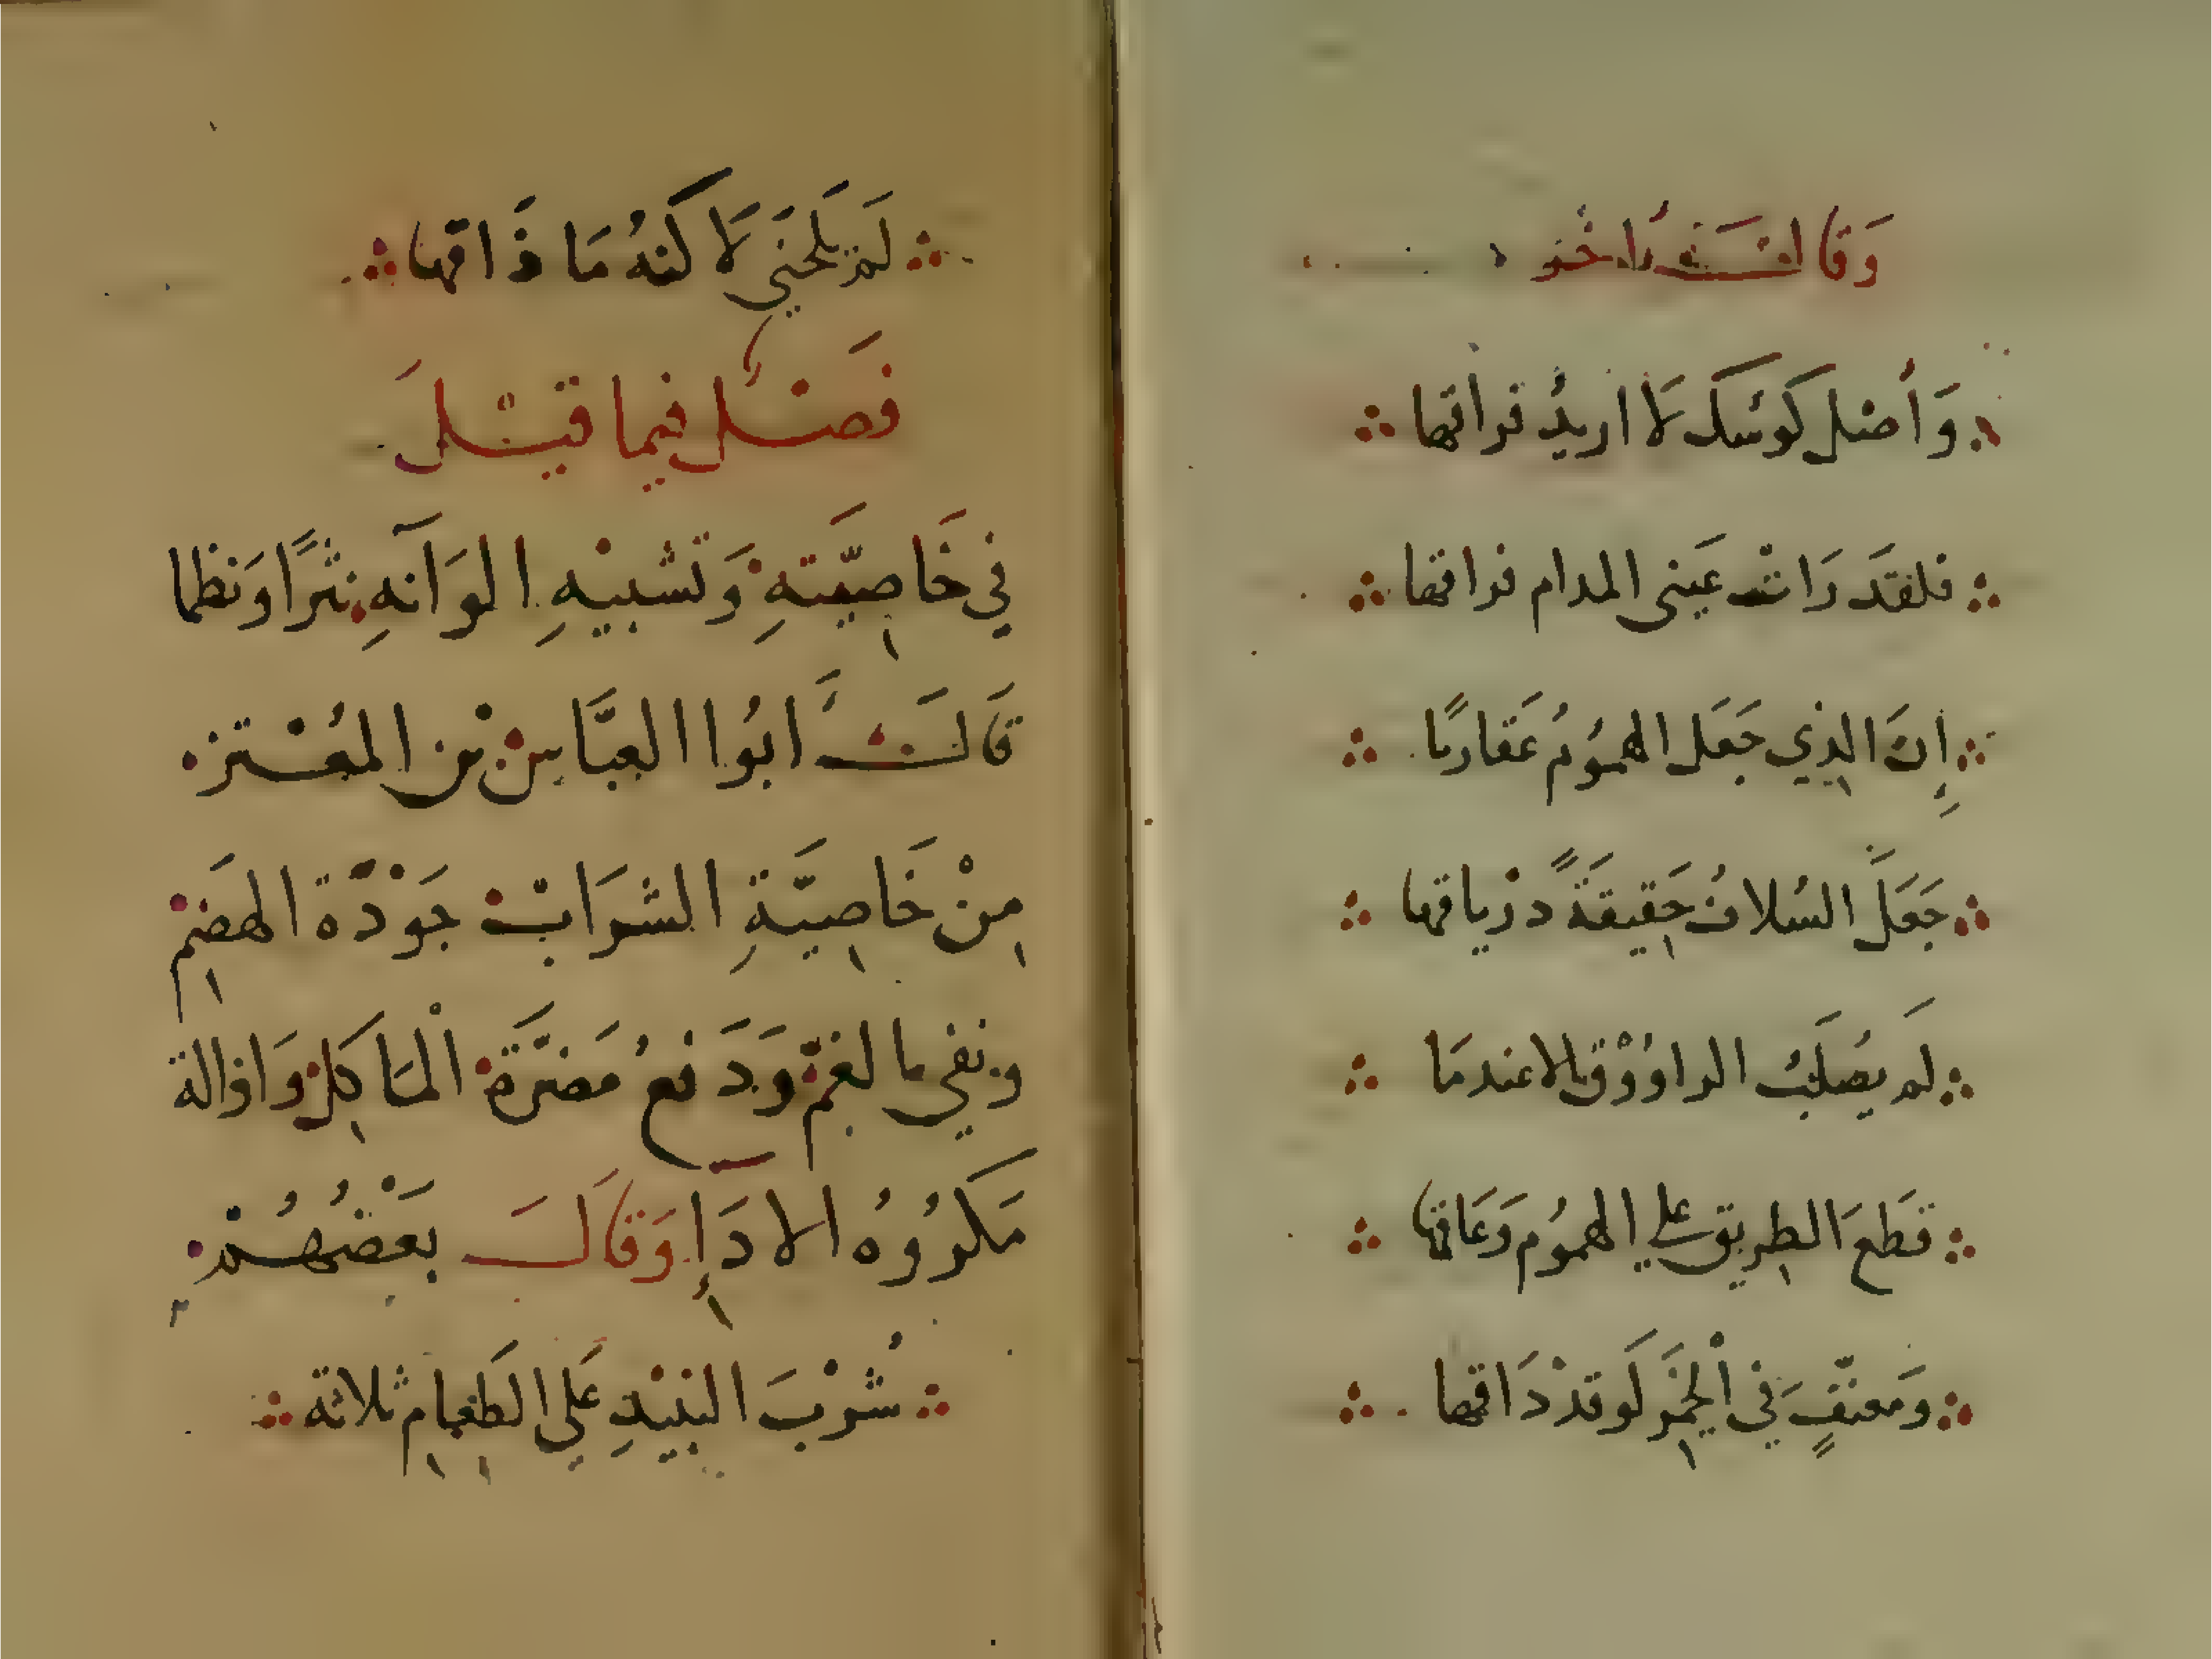 وَقَالَ اخَر
وَأصْل كوسك لَا اريدُ فراقها
فلقَد رَاتْ عَينى المدام فراقها
إِنَ الذِي جَعَل الهمُومُ عَقاربًا
جَعَلَ السُلافُ حَقِيقَةً درْياقها
لَم يصُلَبُ الراوُوْق الا عندمَا
قَطعَ الطرِيق على الهمُوم وَعَاقها
وَمعنّفٍ في اْلخمَر لَو قدْ دَاقها
لَمْ يَلحَنِي لَا كنهُ مَا ذَاقها
فَصْل فيما قيْلَ
في خَاصِيَّتهِ وَتشبيْهِ الوَانهِ نثرًا وَنظما
قَالَ ابُوا العبَّاسْ بن المعُتز
مِنْ خَاصِيَّةِ الشرَابْ جَوْدّة الهضِمْ
ونفى الغمّ وَدَفعُ مَضرَّة اْلمَاكِلْ وَاذالة
مَكرُوُه الادَاإِ وَقَالَ بعَضُهُمْ
شُرْبَ النبيْذِ عَلى الطعَامِ ثلاثة